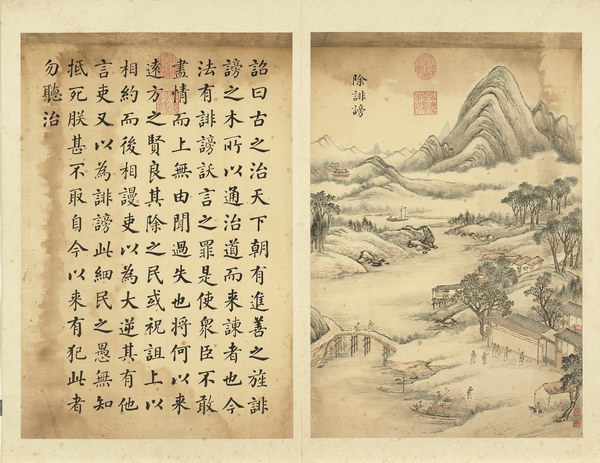 除誹謗
詔曰古之治天下朝有進善之旌誹
謗之木所以通治道而来諫者也今
法有誹謗訞言之罪是使衆臣不敢
盡情而上無由聞過失也将何以来
遠方之賢良其除之民或祝詛上以
相約而後相謾吏以為大逆其有他
言吏又以為誹謗此細民之愚無知
抵死朕甚不取自今以来有犯此者
勿聽治